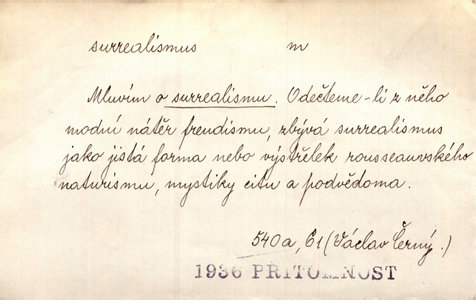 surrealismus m
Mluvím o surrealismu. Odečteme-li z něho
modní nátěr freudismu, zbývá surrealismus
jako jistá forma nebo výstřelek rousseauvského
naturismu, mystiky citu a podvědoma.
540a, 61 (Václav Černý.)
1936 PŘÍTOMNOST